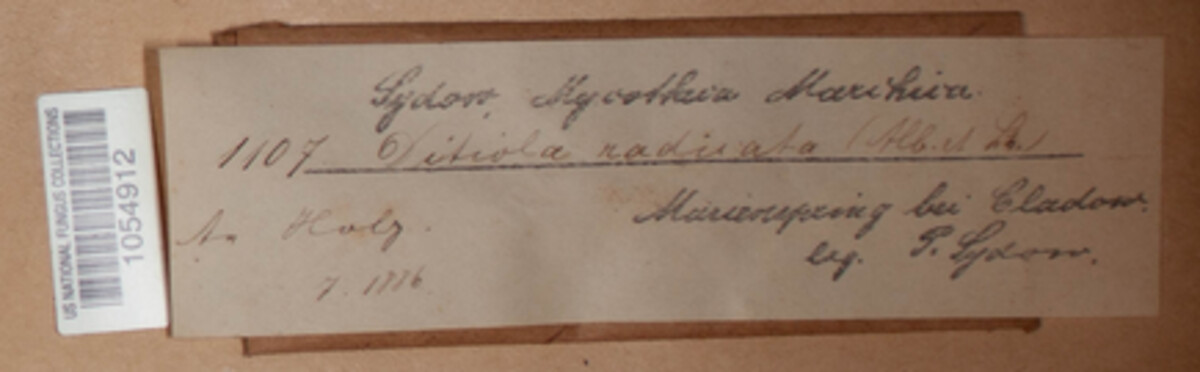 US NATIONAL FUNGUS COLLECTIONS
1054912
Sydow, Mycotheca Marchica.
1107 Ditiola radicata (Alb. et
An Holz.
7. 1886
bei Cladow.
leg. P. Sydow.